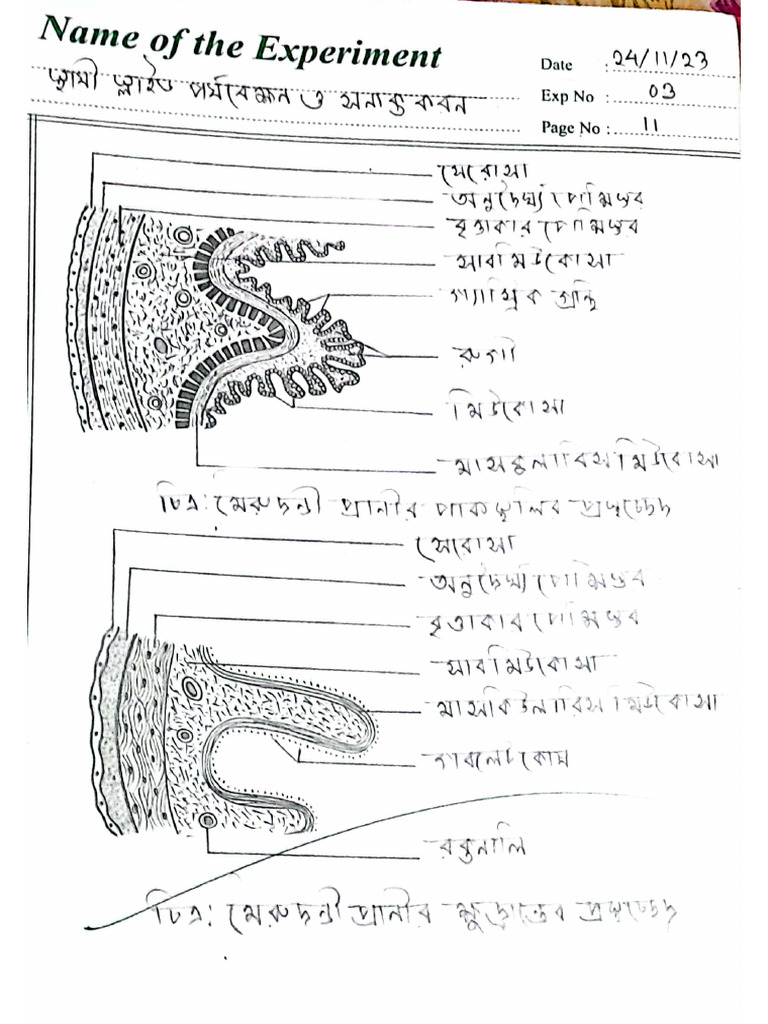 Name of the Experiment
Date : 24/11/23
স্থায়ী স্লাইড পর্যবেক্ষন ও সনাক্তকরন
Exp No : 03
Page No : 11
সেরোসা
অনুদৈর্ঘ্য পেশিস্তর
বৃত্তাকার পেশিস্তর
সাবমিউকোসা
গ্যাস্ট্রিক গ্রন্থি
রুগী
মিউকোসা
মাসকুলারিস মিউকোসা
চিত্র: মেরুদন্ডী প্রানীর পাকস্থলির প্রস্থচ্ছেদ
সেরোসা
অনুদৈর্ঘ্য পেশিস্তর
বৃত্তাকার পেশিস্তর
সাবমিউকোসা
মাসকিউলারিস মিউকোসা
গবলেট কোষ
রক্তনালি
চিত্র: মেরুদন্ডী প্রানীর ক্ষুদ্রান্তের প্রস্থচ্ছেদ